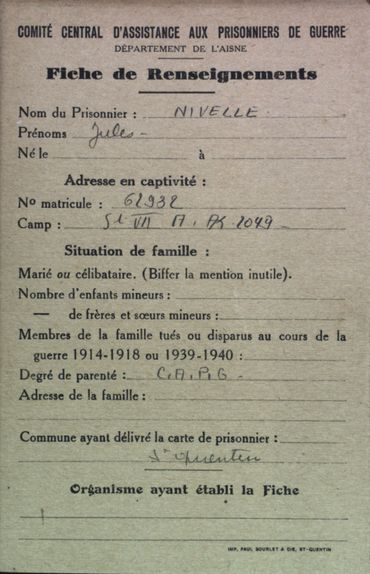 COMITÉ CENTRAL D'ASSISTANCE AUX PRISONNIERS DE GUERRE
DÉPARTEMENT DE L'AISNE
Fiche de Renseignements
Nom du Prisonnier : NIVELLE
Prénoms Jules -
Né le à
Adresse en captivité :
No matricule : 62932
Camp : St VII A. AK 2049 -
Situation de famille :
Marié ou célibataire. (Biffer la mention inutile).
Nombre d'enfants mineurs :
— de frères et sœurs mineurs :
Membres de la famille tués ou disparus au cours de la
guerre 1914-1918 ou 1939-1940 :
Degré de parenté : C.A.P.G -
Adresse de la famille :
Commune ayant délivré la carte de prisonnier :
St Quentin
Organisme ayant établi la Fiche
IMP. PAUL BOURLET & CIE, ST-QUENTIN